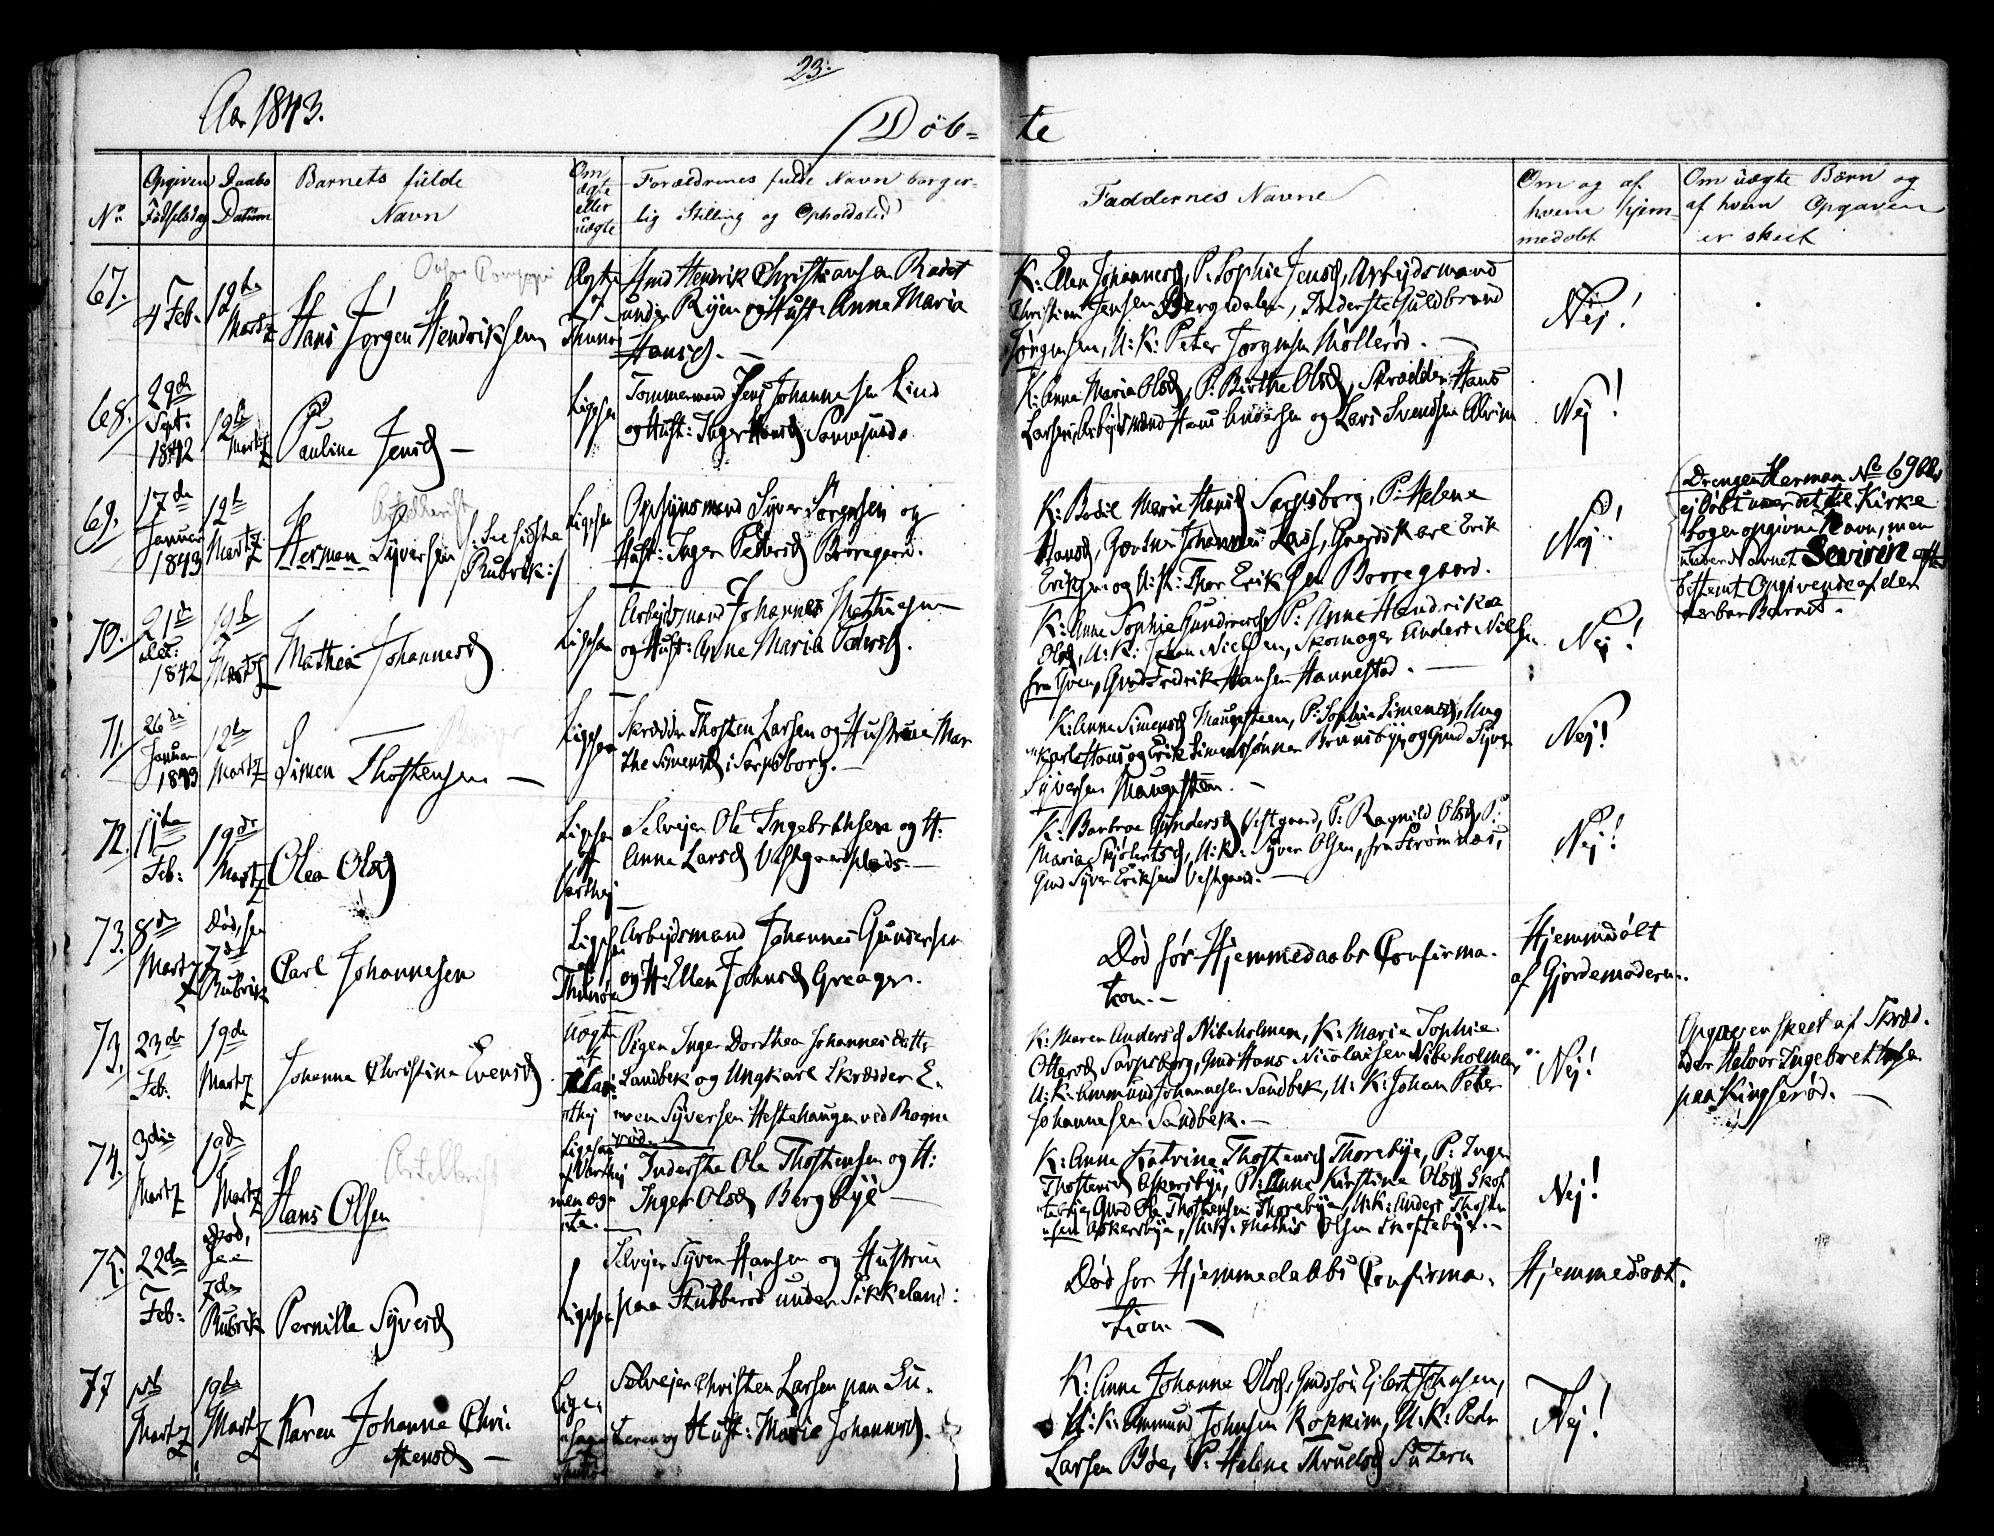 23.
Aar 1843.
Døb-
te
No
Opgiven
Fødselsdag
Daabs
Datum
Barnets fulde
Navn
Om
ægte
eller
uægte
Forældrenes fulde Navn borger-
lig Stilling og Opholdsted
Faddernes Navne
Om og af
hvem hjem-
medøbt
Om uægte Børn og
af hvem Opgaven
er skeet
67.
4 Feb.
12te
Martz
Hans Jørgen Hendriksen
Ægte
Gmd Hendrik Christiansen Rødst
under Ryen og Hust: Anne Maria
Hansd. -
K: Ellen Johannesd, P: Sophie Jensd, Arbeidsmand
Christian Jensen Bergsdalen, Inderste Guldbrand
Jørgensen, U: K: Peter Jørgensen Møllerød. -
Nej!
68.
29de
Sept.
1842
12te
Martz
Pauline Jensd -
Ligesaa
Tømmermand Jens Johannesen Lind
og Hust: Inger Hansd Sannesund.
K: Anna Maria Olsd, P: Birthe Olsd, Skrædder Hans
Larsen, Arbeidsmænd Hans Andersen og Lars Svendsen Alvim
Nej!
69.
17de
Januar
1843
12te
Martz
Herman Syversen
/: See sidste
Rubrik :/
Ligesaa
Opsynsmand Syver Jørgensen og
Hust: Inger Pedersd Borregaard.
K: Bodil Marie Hansd Sarpsborg, P: Helene
Hansd, Gartner Johannes Lass, Gaardskarl Erik
Eriksen og U: K: Thor Eriksen Borregaard.
Nej!
Drengen Herman No 69 blev
ej døbt under det til Kirke
bogen opgivne Navn, men
under Navnet Severin efter
bestemt Opgivende af den
der bar Barnet.
70.
21de
1842
12te
Martz
Mathea Johannesd
Ligesaa
Arbejdsmand Johannes Mathiesen
og Hust: Anne Maria Larsd.
K: Anne Sophie Gundersd, P: Anne Hendrikke
Olsd, U: K: Johan Nielsen, Skomager Anders Nielsen
fra Hven, Gmd Fredrik Hansen Hannestad. -
Nej!
71.
26de
Januar
1843
12te
Martz
Simen Thostensen -
Ligesaa
Skrædder Thosten Larsen og Hustrue Mar
the Simensd i Sarpsborg. -
K: Anne Simensd Haugesteen, P: Sophie Simensd, Ung
karle Hans og Erik Simenssønner Brunsbye og Gmd Syver
Syversen Haugesteen. -
Nej!
72.
11te
Feb:
19de
Martz
Olea Olsd
Ligesaa
Selvejer Ole Ingebretsen og H:
Anne Larsd Vestgaardplads -
K: Barbroe Gundersd Vestgaard, P: Ragnild Olsd, P:
Maria Skjolertsd, U: K: Syver Olsen, fra Strømnes,
Gmd Syver Eriksen Vestgaard. -
Nej!
73.
8de
Martz
Død, see
7de
Rubrik
Carl Johannesen
Ligesaa
Arbejdsmand Johannes Gundersen
og H: Ellen Johnsd Greager.
Død før Hjemmedaabs Confirma-
tion. -
Hjemmedøbt
af Gjordemoderen.
73.
23de
Feb.
19de
Martz
Johanne Christine Evensd
Uægte
Pigen Inger Dorthea Johannesdatt:
Sandbek og Ungkarl Skrædder E-
ven Syversen Hestehaugen ved Rogne
rød.
K: Maren Andersd Nibeholmen, K: Marie Sophie
Ottersd Sarpsborg, Gmd Hans Nicolaisen Nibeholmen,
U: K: Ammund Johannesen Sandbek, U: K: Johan Peter
Johannesen Sandbek. -
Nej!
Opgaven skeet af Skræd-
der Halvor Ingebretsen
paa Kingserød. -
74.
3die
Martz
19de
Martz
Hans Olsen
Ligesaa
Inderste Ole Thostensen og H:
Inger Olsd Bergbye -
K: Anne Katrine Thostensd Thorebye, P: Inger
Thostensd Askersbye, P: Anne Kirstine Olsd Skof
tebye, Gmd Ole Thostensen Thorebye, U: K: Anders Thosten
sen Askersbye, U: K: Mathis Olsen Skoftebye. -
Nej!
75.
22de
Feb:
Død,
see
7de
Rubrik
Pernille Syversd
Ligesaa
Selvejer Syver Hansen og Hustrue
paa Stubberød under Sikkeland:
Død før Hjemmedaabs Confirma-
tion. -
Hjemmedøbt.
77
1ste
Martz
19de
Martz
Karen Johanne Chri-
stensd -
Lige-
saa
Selvejer Christen Larsen paa Su-
teren og Hust: Maria Johannesd.
K: Anne Johanne Olsd, Gmdssøn Ejlert Johnsen,
U: K: Ammund Johnsen Kopperim, U: K: Peder
Larsen Bøe, P: Helene Thrudsd Sutern
Nej!